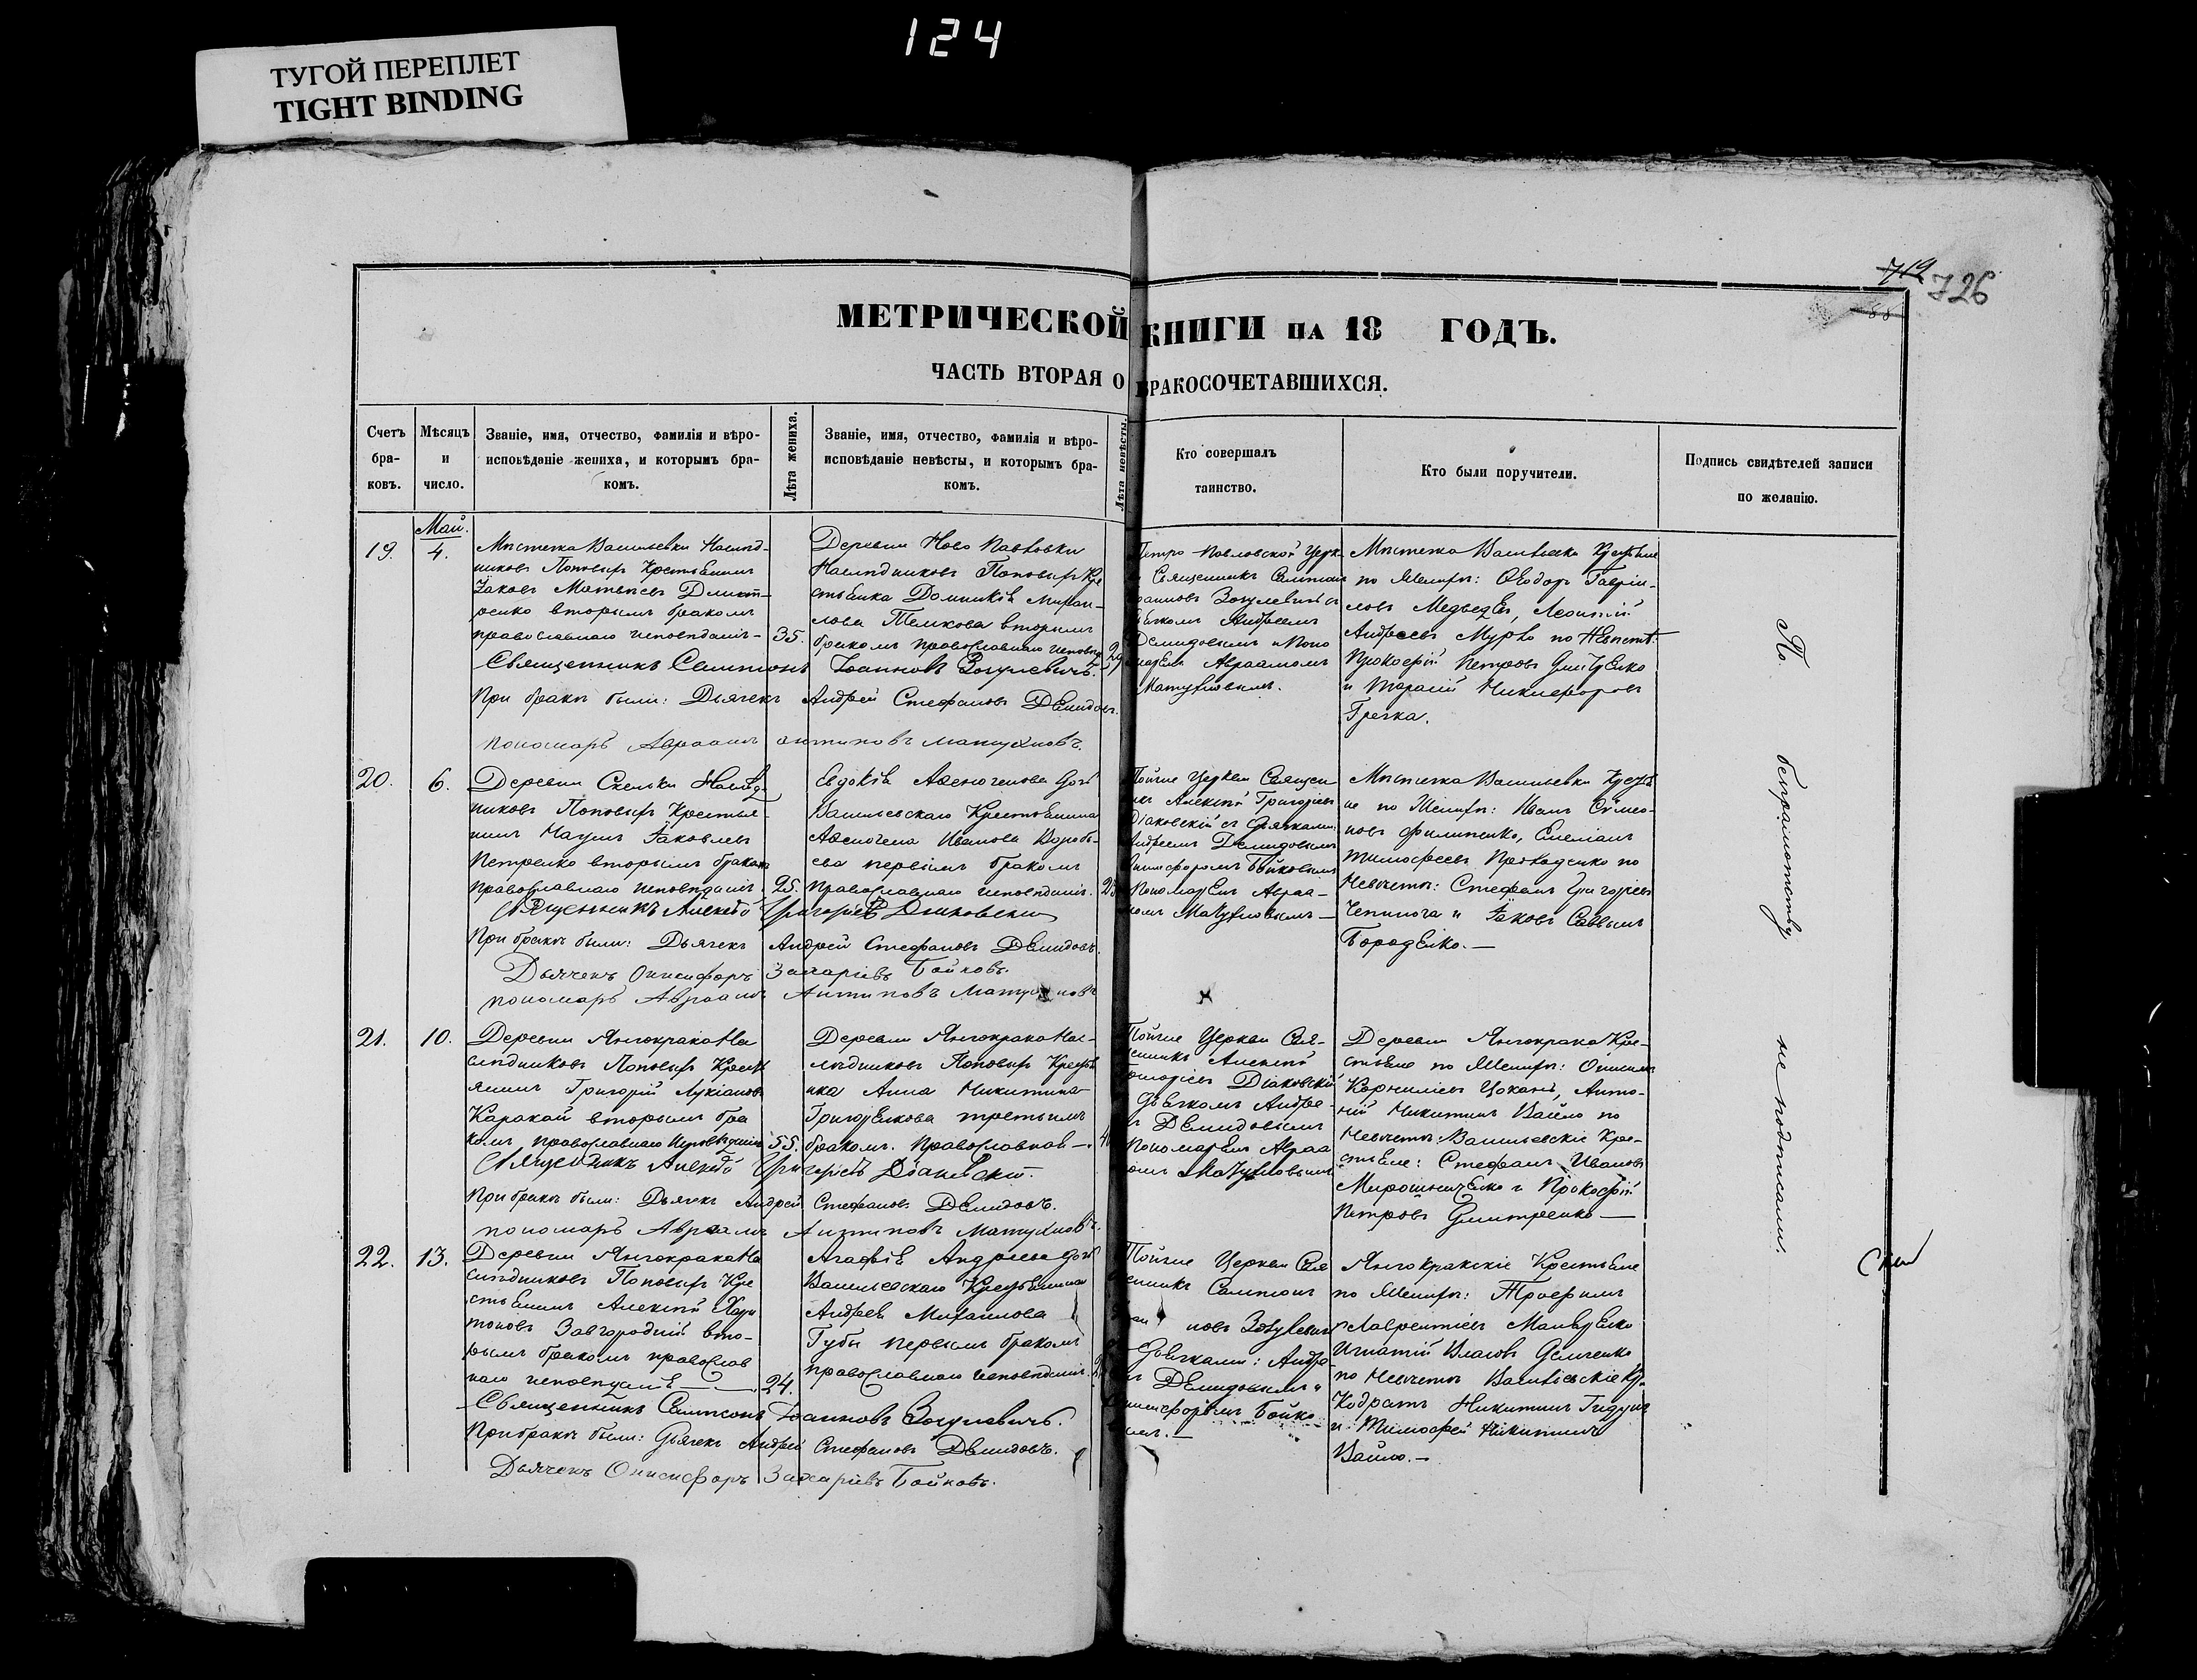 124
ТУГОЙ ПЕРЕПЛЕТ
TIGHT BINDING
719 726
МЕТРИЧЕСКОЙ КНИГИ НА 18 ГОДЪ.
ЧАСТЬ ВТОРАЯ О БРАКОСОЧЕТАВШИХСЯ.
Счетъ бра-ковъ.
Мѣсяцъ и число.
Званіе, имя, отчество, фамилія и вѣро-
исповѣданіе жениха, и которымъ бра-
комъ.
Лѣта жениха.
Званіе, имя, отчество, фамилія и вѣро-
исповѣданіе невѣсты, и которымъ бра-
комъ.
Лѣта невѣсты.
Кто совершалъ
таинство.
Кто были поручители.
Подпись свидѣтелей записи
по желанію.
Май.
19.
4.
Мѣстечка Васильевки Наслѣд-
никовъ Поповыхъ Крестьянинъ
Іаковъ Матвѣевъ Дмит-
ренко вторымъ бракомъ
православнаго исповѣданія-
35.
Деревни Ново Павловки
Наслѣдниковъ Поповыхъ Кре
стьянка Домникія
вторымъ
бракомъ православнаго исповѣд
29
Петро-Павловской Церк
Священникъ Сампсонъ
Іоанновъ Зогулевичъ съ
Дьячкомъ Андреемъ
Демидовымъ и Поно
маремъ Авраамомъ
Матухновымъ.
Мѣстечка Васильевки Крестьяне
по Женихѣ: Ѳеодоръ Гавріи-
ловъ Медведев, Леонтій
Андреевъ по Невѣстѣ:
Прокофій Петровъ Дмитренко
и Тарасій Никифоровъ
Гречка.
Священникъ Сампсонъ Іоанновъ Зогулевичъ.
При бракѣ были: Дьячекъ Андрей Стефановъ Демидовъ.
пономарь Авраамъ Антиповъ Матухновъ.
20.
6.
Деревни Скельки Наслѣд-
никовъ Поповыхъ Крестья-
нинъ Наумъ Іаковлевъ
Петренко вторымъ бракомъ
православнаго исповѣданія.
25.
Евдокія Авксентіева дочь
Васильевскаго Крестьянина
Ивановa Вороб-
ева первымъ бракомъ
Православнаго исповѣданія.
Тойже Церкви Священ
никъ Алексѣй Григоріевъ
Діаковскій съ Дьячками:
Андреемъ Демидовымъ
Онисифоромъ Бойковымъ
Пономаремъ Авраа-
момъ Матухновымъ—
Мѣстечка Васильевки Крестья
не по Женихѣ: Иванъ Сѵмео-
новъ Филипенко, Емеліанъ
Тимофеевъ по
Невѣстѣ: Стефанъ Григоріевъ
Чепинога и Іаковъ Саввинъ
Бороденко.—
Священникъ Алексѣй Григоріевъ Діяковскій
При бракѣ были: Дьячекъ Андрей Стефановъ Демидовъ.
Дьячекъ Онисифоръ Захаріевъ Бойковъ.
пономарь Авраамъ Антиповъ Матухновъ
21.
10.
Деревни Янчокрака На
слѣдниковъ Поповыхъ Кресть
янинъ Григорій Лукіановъ
Каракай вторымъ бра
комъ православнаго исповѣданія
55.
Деревни Янчокрака Нас-
лѣдниковъ Поповыхъ Кресть
нка Анна Никитина
Григоренкова третьимъ
бракомъ. Православнаго—.
Тойже Церкви Свя-
щенникъ Алексѣй
Григоріевъ Діаковскій
Дьячкомъ Андре-
емъ Демидовымъ
Пономаремъ Авраа
момъ Матухновымъ
Деревни Янчокрака Кре-
стьяне по Женихѣ: Онисимъ
Корниліевъ Цоканъ, Анто-
ній Никитинъ Вайло по
Невѣстѣ: Васильевскіе Кре-
стьяне: Стефанъ Ивановъ
Мирошниченко и Прокофій
Петровъ Дмитренко—
Священникъ Алексѣй Григоріевъ Діаковскій.
При бракѣ были: Дьячекъ Андрей Стефановъ Демидовъ.
пономарь Авраамъ Антиповъ Матухновъ.
22.
13.
Деревни Янчокрака На
слѣдниковъ Поповыхъ Кре
стьянинъ Алексѣй Хари
тоновъ Завгородній вто-
рымъ бракомъ православ
наго исповѣданія—
24.
Агафія Андреева дочь
Васильевскаго Крестьянина
Андрея Михаилова
Губы первымъ бракомъ
православнаго исповѣданія.
Тойже Церкви Свя
щенникъ Сампсонъ
новъ Зогулевичъ
Дьячками: Андре
Демидовымъ и
Онисифоромъ Бойко
вымъ.—
Янчокракскіе Крестьяне
по Женихѣ: Трофимъ
Лаврентіевъ
Игнатій Власовъ Демченко
по Невѣстѣ Васильевскіе Кр.
Кодратъ Никитинъ
и Тимофей Никитинъ
Вайло.—
Священникъ Сампсонъ Іоанновъ Зогулевичъ.
При бракѣ были: Дьячекъ Андрей Стефановъ Демидовъ.
Дьячекъ Онисифоръ Захаріевъ Бойковъ.
По безграмотству не подписались.